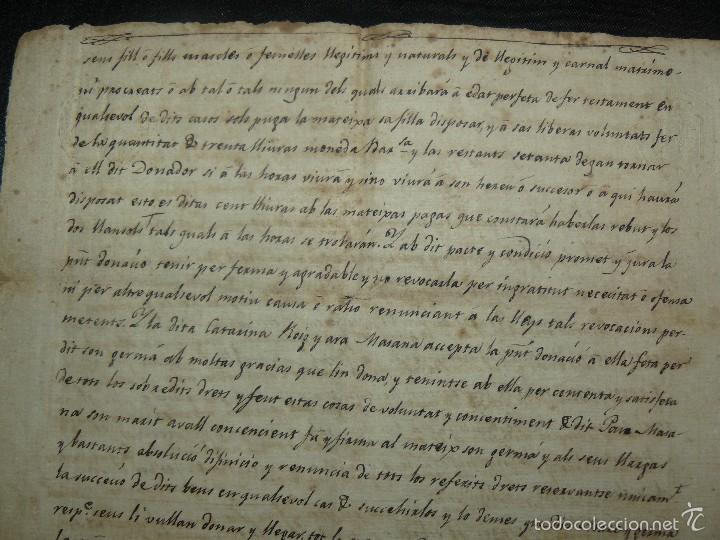 sens fill ó fills mascles ó femelles llegitims y naturals y de llegitim y carnal matrimo-
ni procreats ó ab tal ó tals ningun dels quals arribará á edat perfeta de fer testament en
qualsevol de dits casos sols puga la mateixa sa filla disposar, y á sas liberas voluntats fer
de la quantitat de trenta lliuras moneda Barsa y las restants setanta degan tornar
á ell dit Donador si á las horas viurá y sino viurá á son hereu ó succesor ó á qui haurá
disposat esto es ditas cent lliuras ab las mateixas pagas que constará haberlas rebut y los
dos llansols tals quals á las horas se trobarán. Y ab dit pacte y condició promet y jura la
pnt donació tenir per ferma y agradable y no revocarla per ingratitut necesitat ó ofensa
ni per altre qualsevol motiu causa ó rahó renunciant a las lleys tals revocacions per-
metents. Y la dita Catarina Roig y ara Masana accepta la pnt donació á ella feta per
dit son germá ab moltas gracias que lin dona, y tenintse ab ella per contenta y satisfeta
de tots los sobredits drets y fent estas cosas de voluntat y consentiment de dit Pau Masa-
na son marit avall consencient fá y firma al mateix son germá y als seus llargas
y bastants absolució difinició y renuncia de tots los referits drets reservantse unicamt
la succeció de dits bens en qualsevol cas de succehirlos y lo demes que
respe. seus li vullan donar y llegar, tot lo
todocoleccion.net
todocoleccion.net